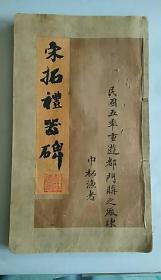 宋拓禮器碑
民國五年重游都門購之廠肆
巾松漁者